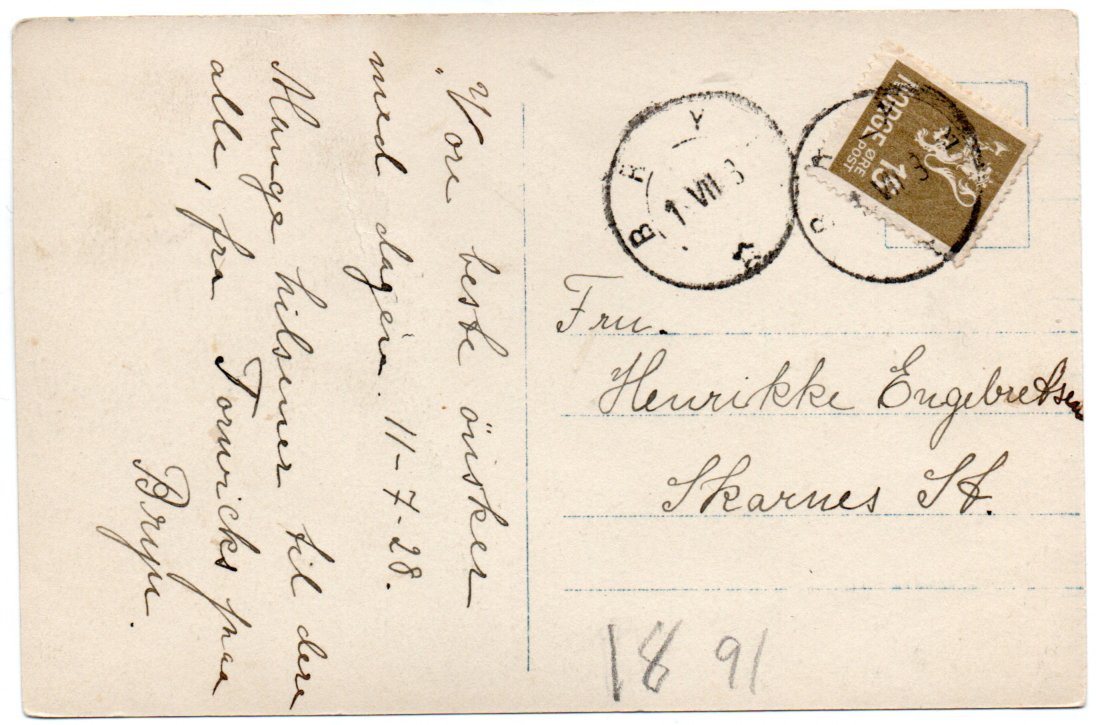 Vore beste önsker
med dagen. 11-7-28.
Mange hilsener til dere
alle, fra Tornvicks paa
Bryn.
NORGE
15
ØRE
POST
BRY
1 VII 3
BRY
VII 3
Fru.
Henrikke Engebretsen
Skarnes St.
18 91